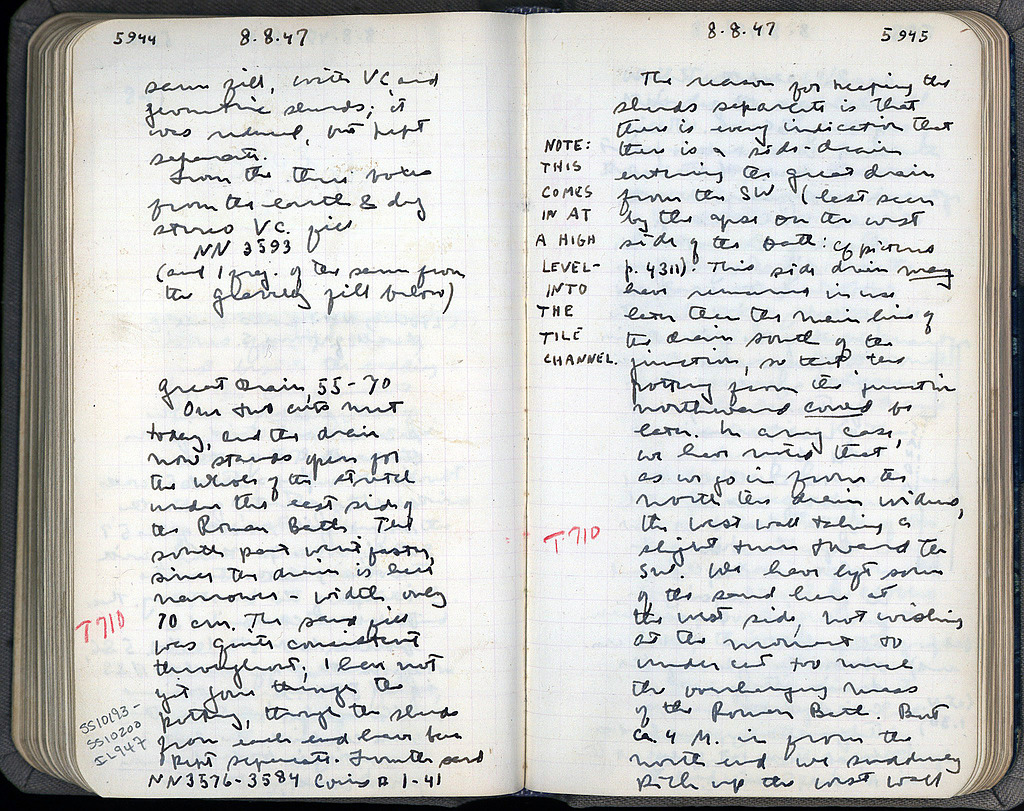 5944
8.8.47
same fill, with VC and
geometric sherds; it
was reduced, but kept
separate.
From the three boxes
from the earth & dog
stereo V.C. fill
NN 3593
(and 1 frag. of the same from
the gravelly fill below)
Great Drain, 55-70
Our two cuts met
today, and the drain
now stands open for
the whole of the stretch
under the east side of
the Roman Bath. The
south part went faster,
since the drain is here
narrower - width only
T 710
70 cm. The sand fill
was quite consistent
throughout; I have not
yet gone through the
pottery, though the sherds
from each end have been
kept separate. From the sand
NN3576-3584 Coins 1-41
SS10193-
SS10200
IL947
8.8.47
5945
The reason for keeping the
sherds separate is that
there is every indication that
there is a side-drain
entering the great drain
from the SW (last seen
by the apse on the west
side of the Bath: cf pictures
p. 4311). This side drain may
have remained in use
later than the main line of
the drain south of the
junction, so that the
pottery from the junction
northward could be
later. In any case,
we have noted that
as we go in from the
north the drain widens,
the west wall taking a
slight turn toward the
SW. We have left some
of the sand here at
the west side, not wishing
at the moment to
undercut too much
the overhanging mass
of the Roman Bath. But
ca 4 M. in from the
north end we suddenly
pick up the west wall
NOTE:
THIS
COMES
IN AT
A HIGH
LEVEL-
INTO
THE
TILE
CHANNEL.
T 710